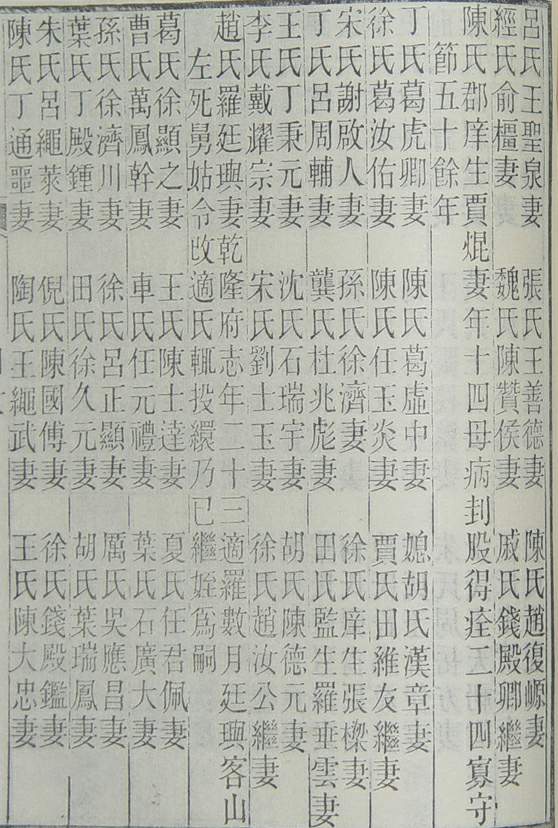 呂氏王聖泉妻　張氏王善德妻　陳氏趙復嫄妻
經氏俞櫃妻　魏氏陳贊侯妻　戚氏錢殿卿繼妻
陳氏郡庠生賈焜妻年十四母病刲股得痊二十四寡守
節五十餘年
丁氏葛虎卿妻　陳氏葛虛中妻　媳胡氏漢章妻
徐氏葛汝佑妻　陳氏任玉炎妻　賈氏田維友繼妻
宋氏謝啟人妻　孫氏徐濟妻　徐氏庠生張樑妻
丁氏呂周輔妻　龔氏杜兆彪妻　田氏監生羅垂雲妻
王氏丁秉元妻　沈氏石瑞宇妻　胡氏陳德元妻
李氏戴耀宗妻　宋氏劉士玉妻　徐氏趙汝公繼妻
趙氏羅廷璵妻乾隆府志年二十三適羅數月廷璵客山
左死舅姑令改適氏輒投繯乃已繼姪為嗣
葛氏徐顯之妻　王氏陳士達妻　夏氏任君佩妻
曹氏萬鳳幹妻　車氏任元禮妻　葉氏石廣大妻
孫氏徐濟川妻　徐氏呂正顯妻　厲氏吳應昌妻
葉氏丁殿鍾妻　田氏徐久元妻　胡氏葉瑞鳳妻
朱氏呂繩萊妻　倪氏陳國傅妻　徐氏錢殿鑑妻
陳氏丁通噩妻　陶氏王繩武妻　王氏陳大忠妻